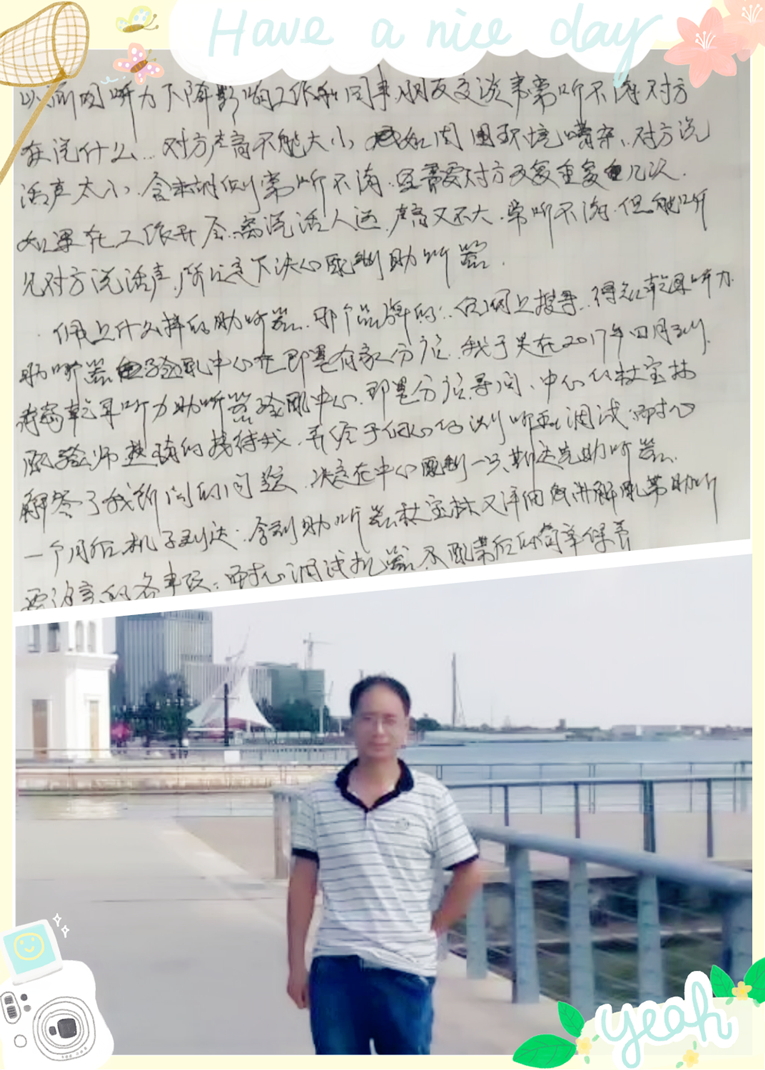 Have a nice day
以前因听力下降影响工作和同事朋友交谈常常听不清对方
在说什么..对方声音不能太小,或如周围环境嘈杂..对方说
话声太小.会都常听不清.且需要对方反复重复几次.
如果在工作开会.离说话人远.声音又不大.常听不清.但能听
见对方说话声,所以定下决心配制助听器.
佩上什么样的助听器.那个品牌的..网上搜寻..得知乾耳听力
助听器验配中心在即墨有家分店.我于是在2017年四月到
乾耳听力助听器验配中心.即墨分店寻问.中心杜宝林
配验师热情的接待我.并给予细心的测听和调试.耐心
解答了我所问的问题.决定在中心配制一只斯达克助听器.
一个月后机子到达.拿到助听器杜宝林又详细讲解配带助听
要注意的各事项.耐心调试机器及配带后的简单保养
yeah